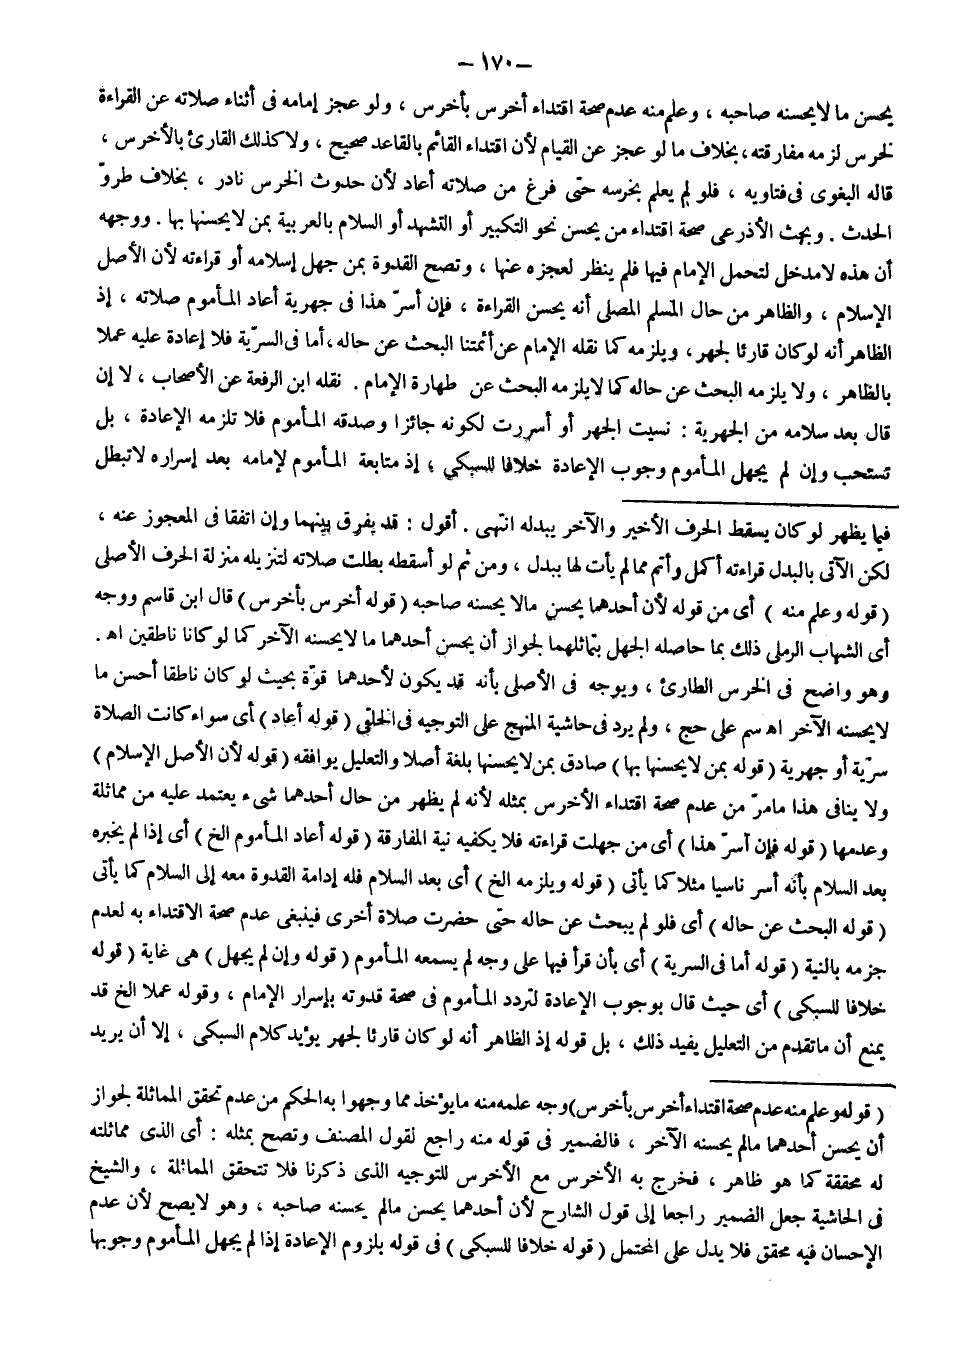 — ١٧٠ —
يحسن ما لايحسنه صاحبه ، وعلم منه عدم صحة اقتداء أخرس بأخرس ، ولو عجز إمامه فى أثناء صلاته عن القراءة
لخرس لزمه مفارقته ، بخلاف ما لو عجز عن القيام لأن اقتداء القائم بالقاعد صحيح ، ولا كذلك القارئ بالأخرس ،
قاله البغوى فى فتاويه ، فلو لم يعلم بخرسه حتى فرغ من صلاته أعاد لأن حدوث الخرس نادر ، بخلاف طروّ
الحدث . وبحث الأذرعى صحة اقتداء من يحسن نحو التكبير أو التشهد أو السلام بالعربية بمن لايحسنها بها . ووجهه
أن هذه لامدخل لتحمل الإمام فيها فلم ينظر لعجزه عنها ، وتصح القدوة بمن جهل إسلامه أو قراءته لأن الأصل
الإسلام ، والظاهر من حال المسلم المصلى أنه يحسن القراءة ، فإن أسرّ هذا فى جهرية أعاد المأموم صلاته ، إذ
الظاهر أنه لو كان قارئا لجهر ، ويلزمه كما نقله الإمام عن أئمتنا البحث عن حاله ، أما فى السرّية فلا إعادة عليه عملا
بالظاهر ، ولا يلزمه البحث عن حاله كما لايلزمه البحث عن طهارة الإمام . نقله ابن الرفعة عن الأصحاب ، لا إن
قال بعد سلامه من الجهرية : نسيت الجهر أو أسررت لكونه جائزا وصدقه المأموم فلا تلزمه الإعادة ، بل
تستحب وإن لم يجهل المأموم وجوب الإعادة خلافا للسبكي ؛ إذ متابعة المأموم لإمامه بعد إسراره لاتبطل
فيما يظهر لو كان يسقط الحرف الأخير والآخر يبدله انتهى . أقول : قد يفرق بينهما وإن اتفقا فى المعجوز عنه ،
لكن الآتى بالبدل قراءته أكمل وأتم مما لم يأت لها ببدل ، ومن ثم لو أسقطه بطلت صلاته لتنزيله منزلة الحرف الأصلى
( قوله وعلم منه ) أى من قوله لأن أحدهما يحسن مالا يحسنه صاحبه ( قوله أخرس بأخرس ) قال ابن قاسم ووجه
أى الشهاب الرملى ذلك بما حاصله الجهل بتماثلهما لجواز أن يحسن أحدهما ما لايحسنه الآخر كما لو كانا ناطقين اهـ .
وهو واضح فى الخرس الطارئ ، ويوجه فى الأصلى بأنه قد يكون لأحدهما قوّة بحيث لو كان ناطقا أحسن ما
لايحسنه الآخر اهـ سم على حج ، ولم يرد فى حاشية المنهج على التوجيه فى الخلقى ( قوله أعاد ) أى سواء كانت الصلاة
سرّية أو جهرية ( قوله بمن لايحسنها بها ) صادق بمن لايحسنها بلغة أصلا والتعليل يوافقه ( قوله لأن الأصل الإسلام )
ولا ينافى هذا مامرّ من عدم صحة اقتداء الأخرس بمثله لأنه لم يظهر من حال أحدهما شىء يعتمد عليه من مماثلة
وعدمها ( قوله فإن أسرّ هذا ) أى من جهلت قراءته فلا يكفيه نية المفارقة ( قوله أعاد المأموم الخ ) أى إذا لم يخبره
بعد السلام بأنه أسر ناسيا مثلا كما يأتى ( قوله ويلزمه الخ ) أى بعد السلام فله إدامة القدوة معه إلى السلام كما يأتى
( قوله البحث عن حاله ) أى فلو لم يبحث عن حاله حتى حضرت صلاة أخرى فينبغى عدم صحة الاقتداء به لعدم
جزمه بالنية ( قوله أما فى السرية ) أى بأن قرأ فيها على وجه لم يسمعه المأموم ( قوله وإن لم يجهل ) هى غاية ( قوله
خلافا للسبكى ) أى حيث قال بوجوب الإعادة لتردد المأموم فى صحة قدوته بإسرار الإمام ، وقوله عملا الخ قد
يمنع أن ماتقدم من التعليل يفيد ذلك ، بل قوله إذ الظاهر أنه لو كان قارئا لجهر يؤيد كلام السبكى ، إلا أن يريد
( قوله وعلم منه عدم صحة اقتداء أخرس بأخرس ) وجه علمه منه ما يؤخذ مما وجهوا به الحكم من عدم تحقق المماثلة لجواز
أن يحسن أحدهما مالم يحسنه الآخر ، فالضمير فى قوله منه راجع لقول المصنف وتصح بمثله : أى الذى مماثلته
له محققة كما هو ظاهر ، فخرج به الأخرس مع الأخرس للتوجيه الذى ذكرنا فلا تتحقق المماثلة ، والشيخ
فى الحاشية جعل الضمير راجعا إلى قول الشارح لأن أحدهما يحسن مالم يحسنه صاحبه ، وهو لايصح لأن عدم
الإحسان فيه محقق فلا يدل على المحتمل ( قوله خلافا للسبكى ) فى قوله بلزوم الإعادة إذا لم يجهل المأموم وجوبها